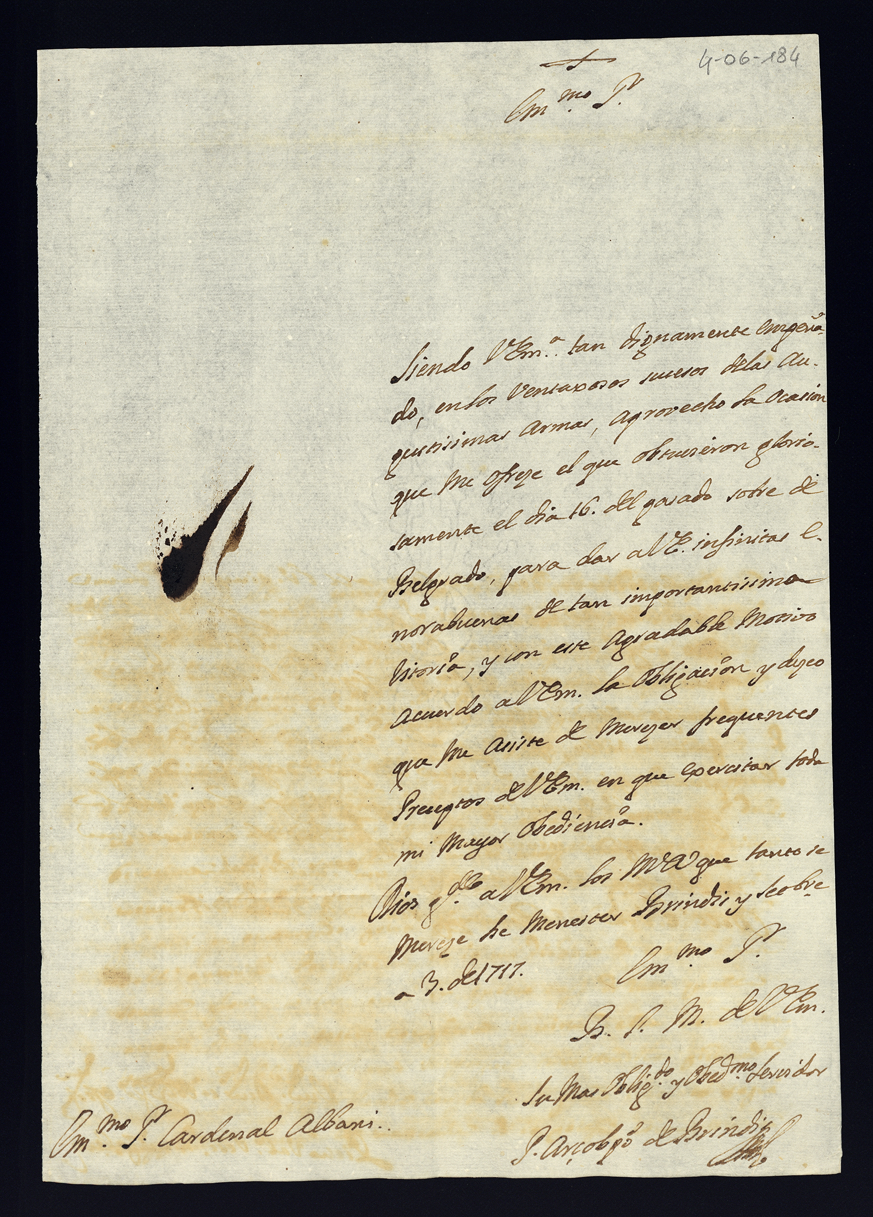 4-06-184
Em.mo S.r
Siendo VEm.a tan dignamente empeña-
do, en los Ventaxosos sucesos delas Au-
gustissimas Armas, aprovecho la Ocasion
que Me ofreze el que obtuvieron glorio-
samente el dia 16. del pasado sobre de
Belgrado, para dar a VE. infinitas e-
norabuenas de tan importantissima
Vitoria, y con este Agradable Motivo
Acuerdo a VEm. la Obligacion y deseo
que Me Asiste de Merezer frequentes
Preceptos de VEm. en que Exercitar toda
mi Mayor Obediencia.
Dios g.de a VEm. los M.s A.s que tanto se
Mereze he Menester Brindis y Seobre
a 3. de 1717.
Em.mo S.r
B. L. M. de VEm.
Su Mas Oblig.do y Obed.mo Servidor
P. Arçobpo de Brindis
Em.mo S.r Cardenal Albani.